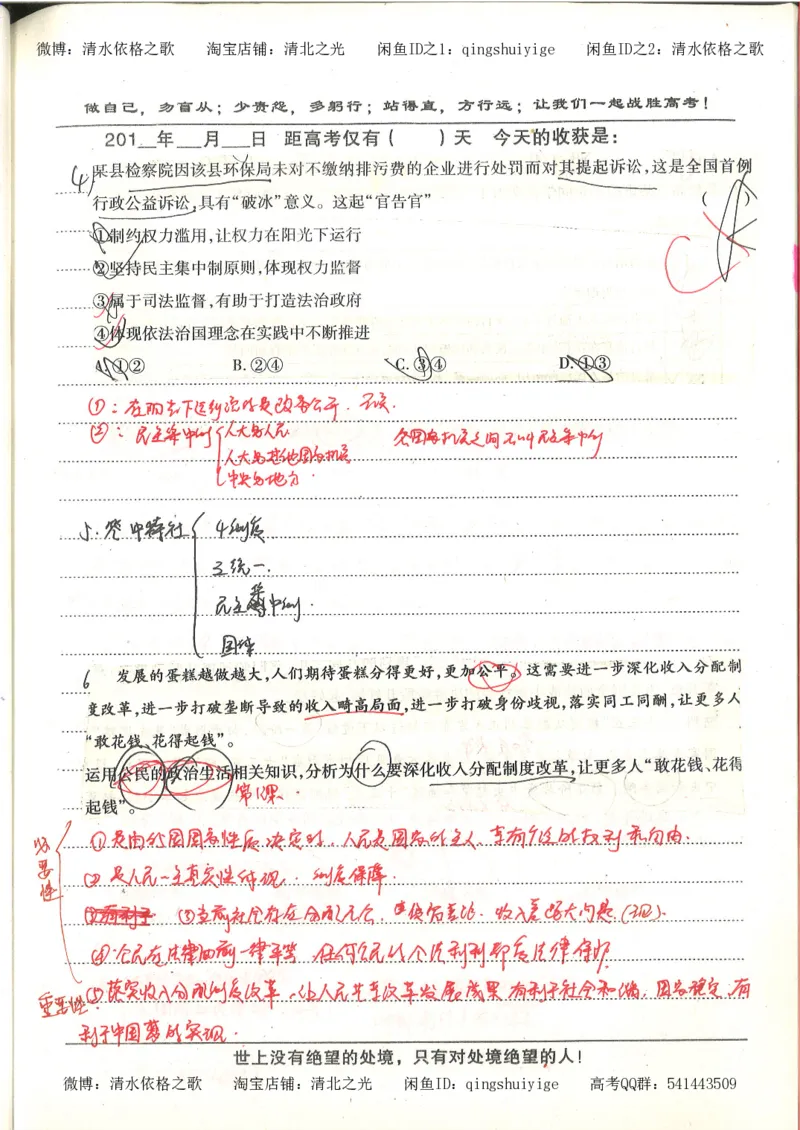 微博：清水依格之歌 淘宝店铺：清北之光 闲鱼ID之1：qingshuiyige 闲鱼ID之2：清水依格之歌
做自己，勿盲从；少责怨，多躬行；站得直，方行远；让我们一起战胜高考！
201__年___月___日 距高考仅有（ ）天 今天的收获是：
4) 某县检察院因该县环保局未对不缴纳排污费的企业进行处罚而对其提起诉讼，这是全国首例
行政公益诉讼，具有“破冰”意义。这起“官告官” （ ）
①制约权力滥用，让权力在阳光下运行
②坚持民主集中制原则，体现权力监督
③属于司法监督，有助于打造法治政府
④体现依法治国理念在实践中不断推进
A. ①② B. ②④ C. ③④ D. ①③
①：在阳光下运行强调是政务公开．不选．
②：民主集中制 人大与人民
人大与其他国家机关
中央与地方．
各国家机关之间不叫民主集中制
5. 答 中特社 4制度
三统一．
民主集中制．
国性
6 发展的蛋糕越做越大，人们期待蛋糕分得更好，更加公平。这需要进一步深化收入分配制
度改革，进一步打破垄断导致的收入畸高局面，进一步打破身份歧视，落实同工同酬，让更多人
“敢花钱、花得起钱”。
运用公民的政治生活相关知识，分析为什么要深化收入分配制度改革，让更多人“敢花钱、花得
起钱”。 第1课．
必要性
①是由我国国家性质决定的，人民是国家的主人、享有广泛的权利和自由．
②是人民民主真实性体现．制度保障．
③当前社会存在分配不公、贫富差距．收入差距大问题．
④公民在法律面前一律平等 任何公民的合法利益都受法律保护．
重要性：
⑤落实收入分配制度改革，让人民共享改革发展成果 有利于社会和谐．国家稳定，有
利于中国梦的实现．
世上没有绝望的处境，只有对处境绝望的人！
微博：清水依格之歌 淘宝店铺：清北之光 闲鱼ID：qingshuiyige 高考QQ群：541443509